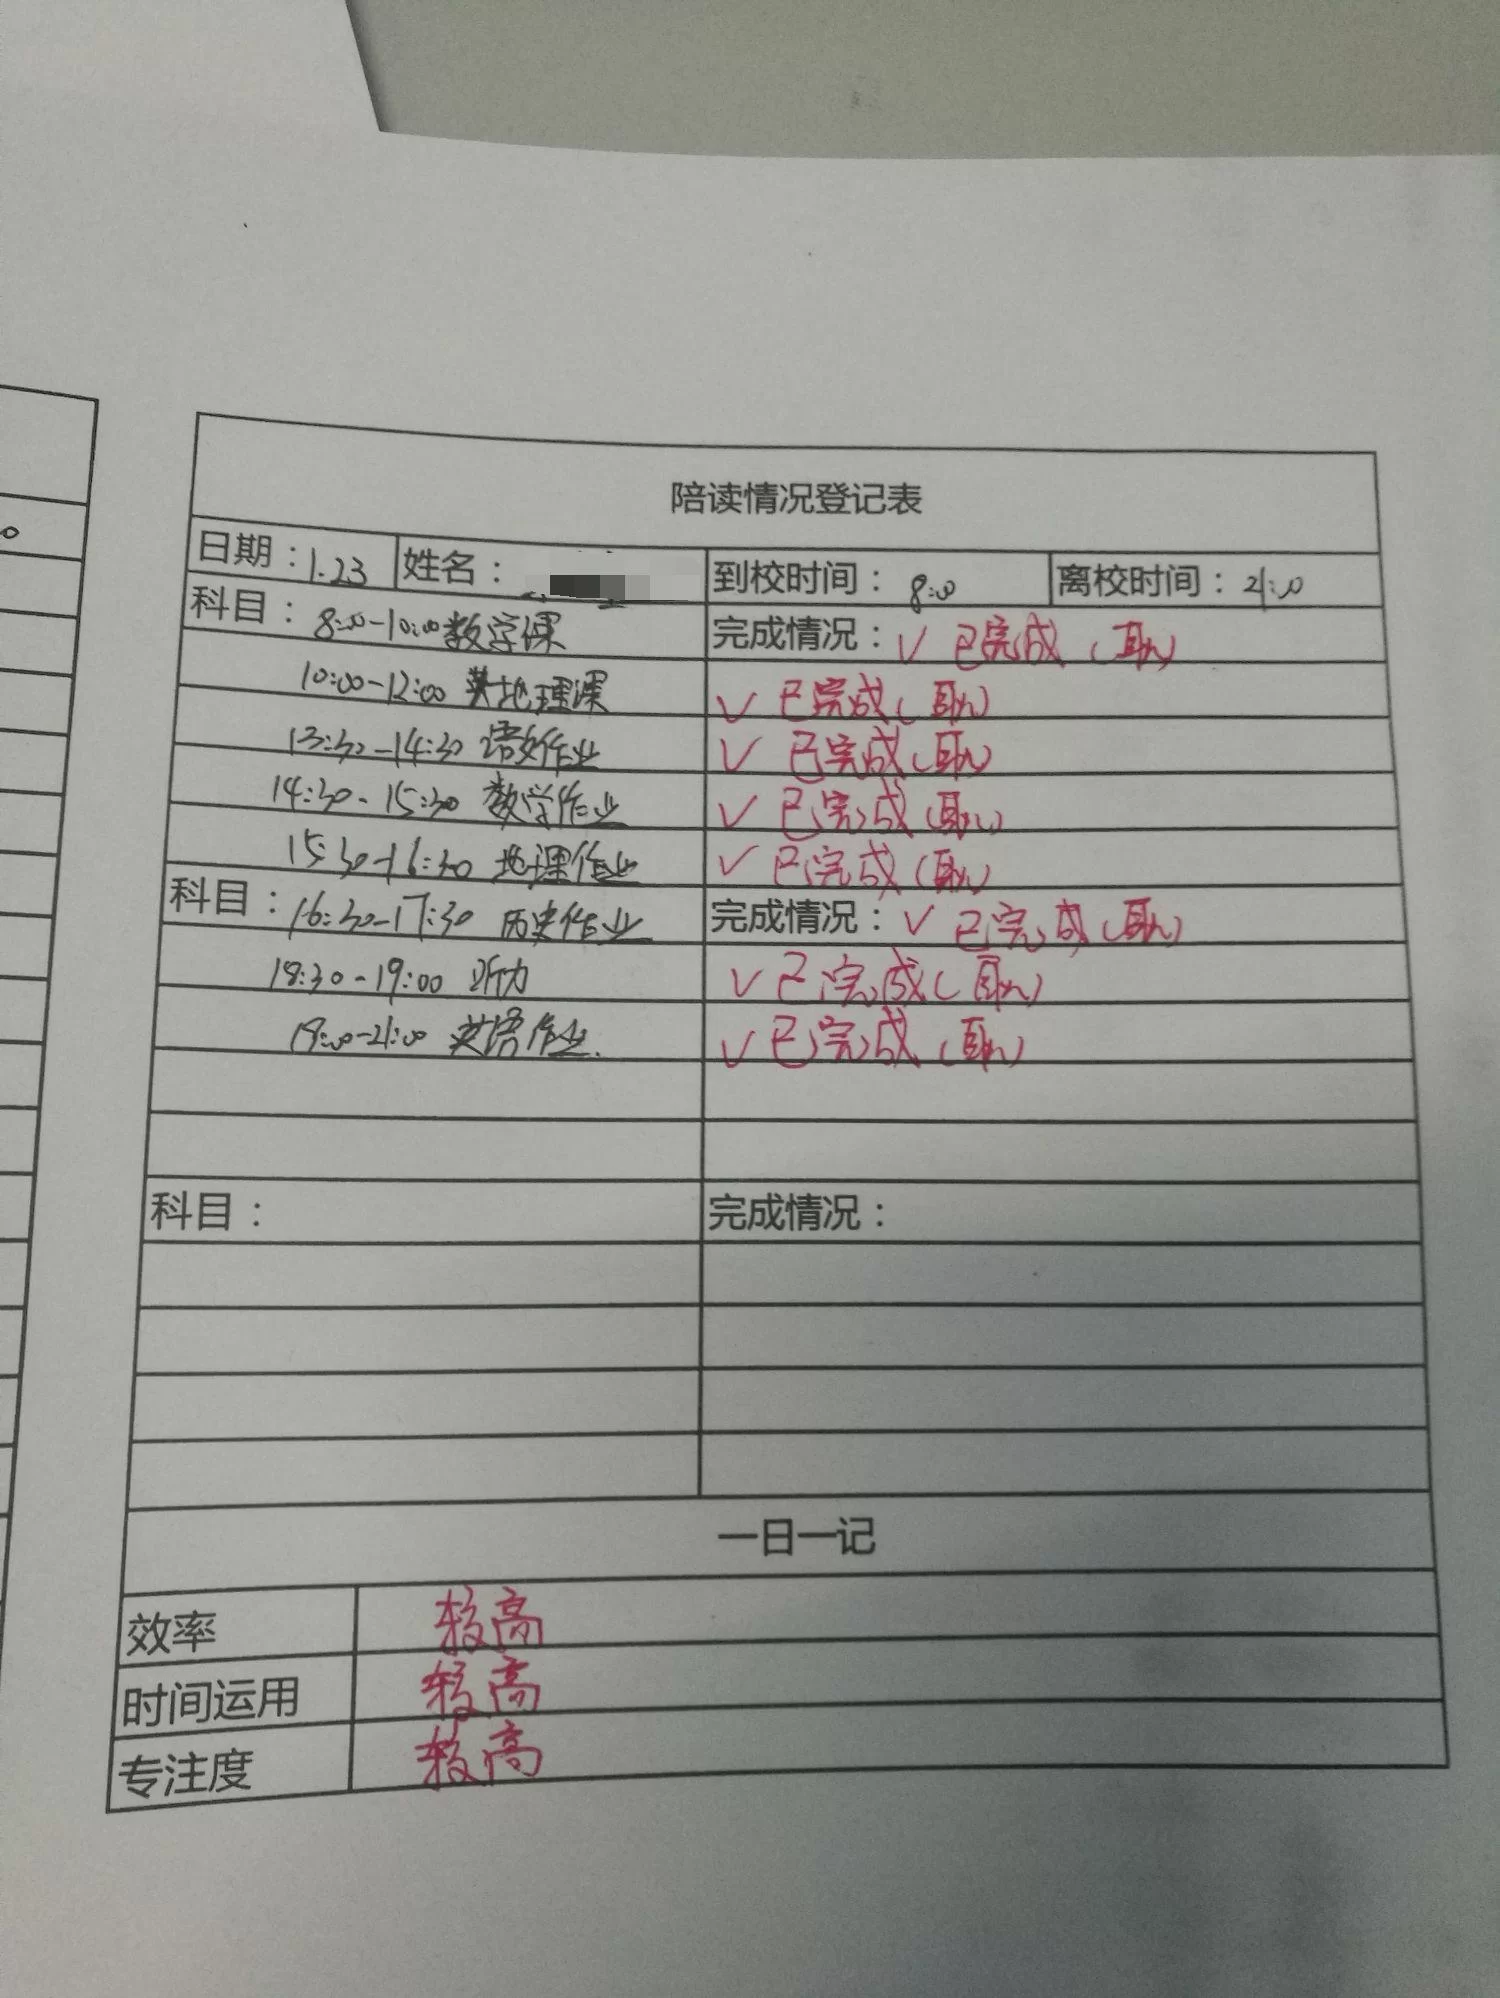 陪读情况登记表
日期：1.23 姓名： 到校时间：8:00 离校时间：21:00
科目：8:00-10:00 数学课 完成情况：✓ 已完成（耿）
10:00-12:00 地理课 ✓ 已完成（耿）
13:30-14:30 语文作业 ✓ 已完成（耿）
14:30-15:30 数学作业 ✓ 已完成（耿）
15:30-16:30 地理作业 ✓ 已完成（耿）
科目：16:30-17:30 历史作业 完成情况：✓ 已完成（耿）
18:30-19:00 听力 ✓ 已完成（耿）
19:00-21:00 英语作业 ✓ 已完成（耿）
科目： 完成情况：
一日一记
效率 较高
时间运用 较高
专注度 较高